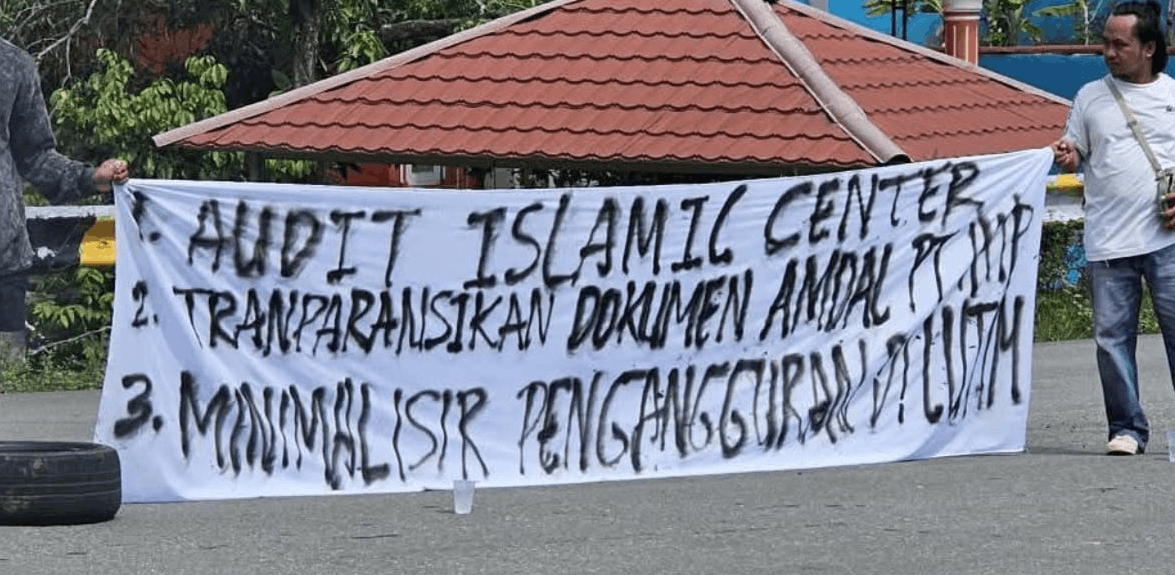 1. AUDIT ISLAMIC CENTER
2. TRANPARANSIKAN DOKUMEN AMDAL PT.
3. MINIMALISIR PENGANGGURAN DI LUTIM